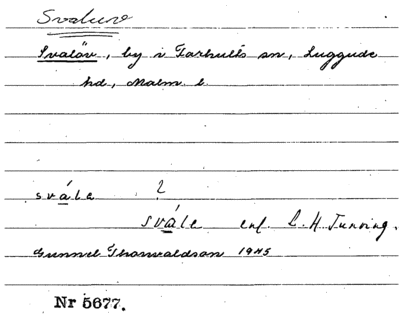 Svalöv, by i Farhults sn, Luggude
hd, Malm. l.
svále ?
svále enl. C. H. Tunving.
Gunnel Thorwaldson 1945
Nr 5677.